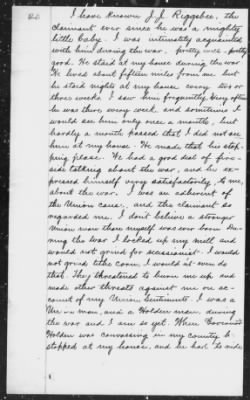 I have known J. J. Riggsbee, the
claimant ever since he was a mighty
little baby. I was intimately acquainted
with him during the war. pretty well - pretty
good. He staid at my house during the war.
He lived about fifteen miles from me but
he staid nights at my house every two or
three weeks. I saw him frequently. Very often
he was there every week, and sometimes I
would see him only once a month, but
hardly a month passed that I did not see
him at my house. He made that his stop-
ping place. We had a good deal of fire-
side talking about the war, and he ex-
pressed himself very satisfactorily to me,
about the war. I was an adherent of
the Union cause, and the claimant so
regarded me. I don't believe a stronger
Union man than myself was ever born. Du-
ring the war I locked up my mill and
would not grind for secessionist. I would
not grind tithe corn. I would not even do
that. They threatened to burn me up and
made other threats against me on ac-
count of my Union sentiments. I was a
Union man, and a Holden man, during
the war and I am so yet. When Governor
Holden was canvassing in my county he
stopped at my house, and he had to ride